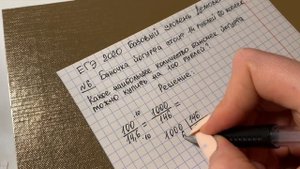 ЕГЭ 2020 Базовый уровень Демоверсия
№6 Баночка йогурта стоит 14 рублей 60 копеек
Какое наибольшее количество баночек йогурта
можно купить на 100 рублей?
Решение:
100 ·10 / 14,6 ·10 = 1000 / 146 =
1000 | 146